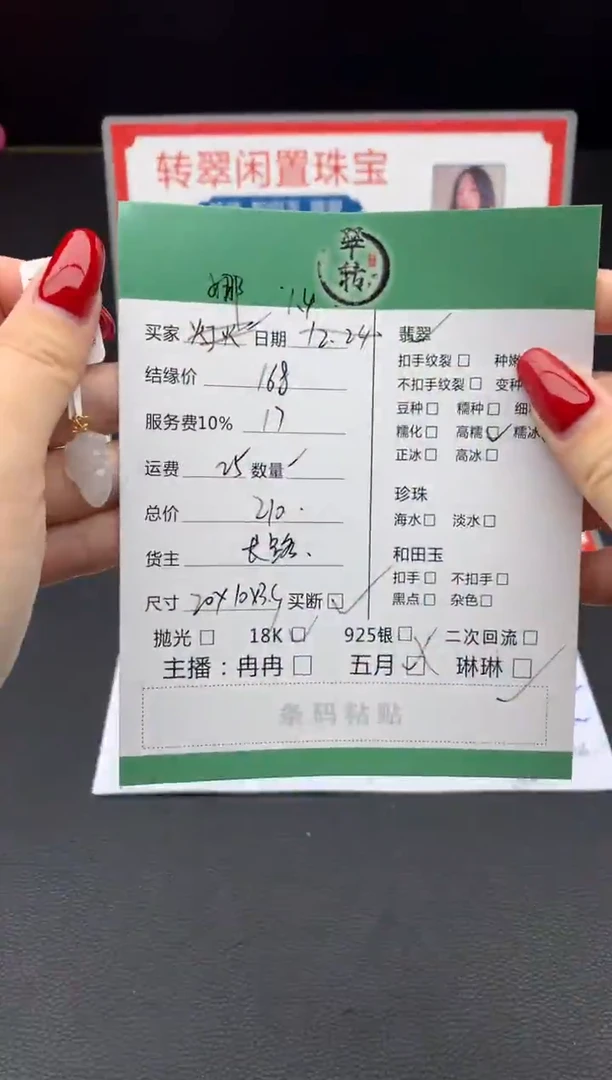 转翠闲置珠宝
翠转
娜 1.4
买家 日期 12.24.
结缘价 168
服务费10% 17
运费 25 数量
总价 210.
货主 长路.
尺寸 20×10×3.5 买断☑
翡翠
扣手纹裂□ 种嫩
不扣手纹裂□ 变种
豆种□ 糯种□ 细
糯化□ 高糯☑ 糯冰
正冰□ 高冰□
珍珠
海水□ 淡水□
和田玉
扣手□ 不扣手□
黑点□ 杂色□
抛光□ 18K☑ 925银□ 二次回流□
主播：冉冉□ 五月☑ 琳琳☑
条码粘贴